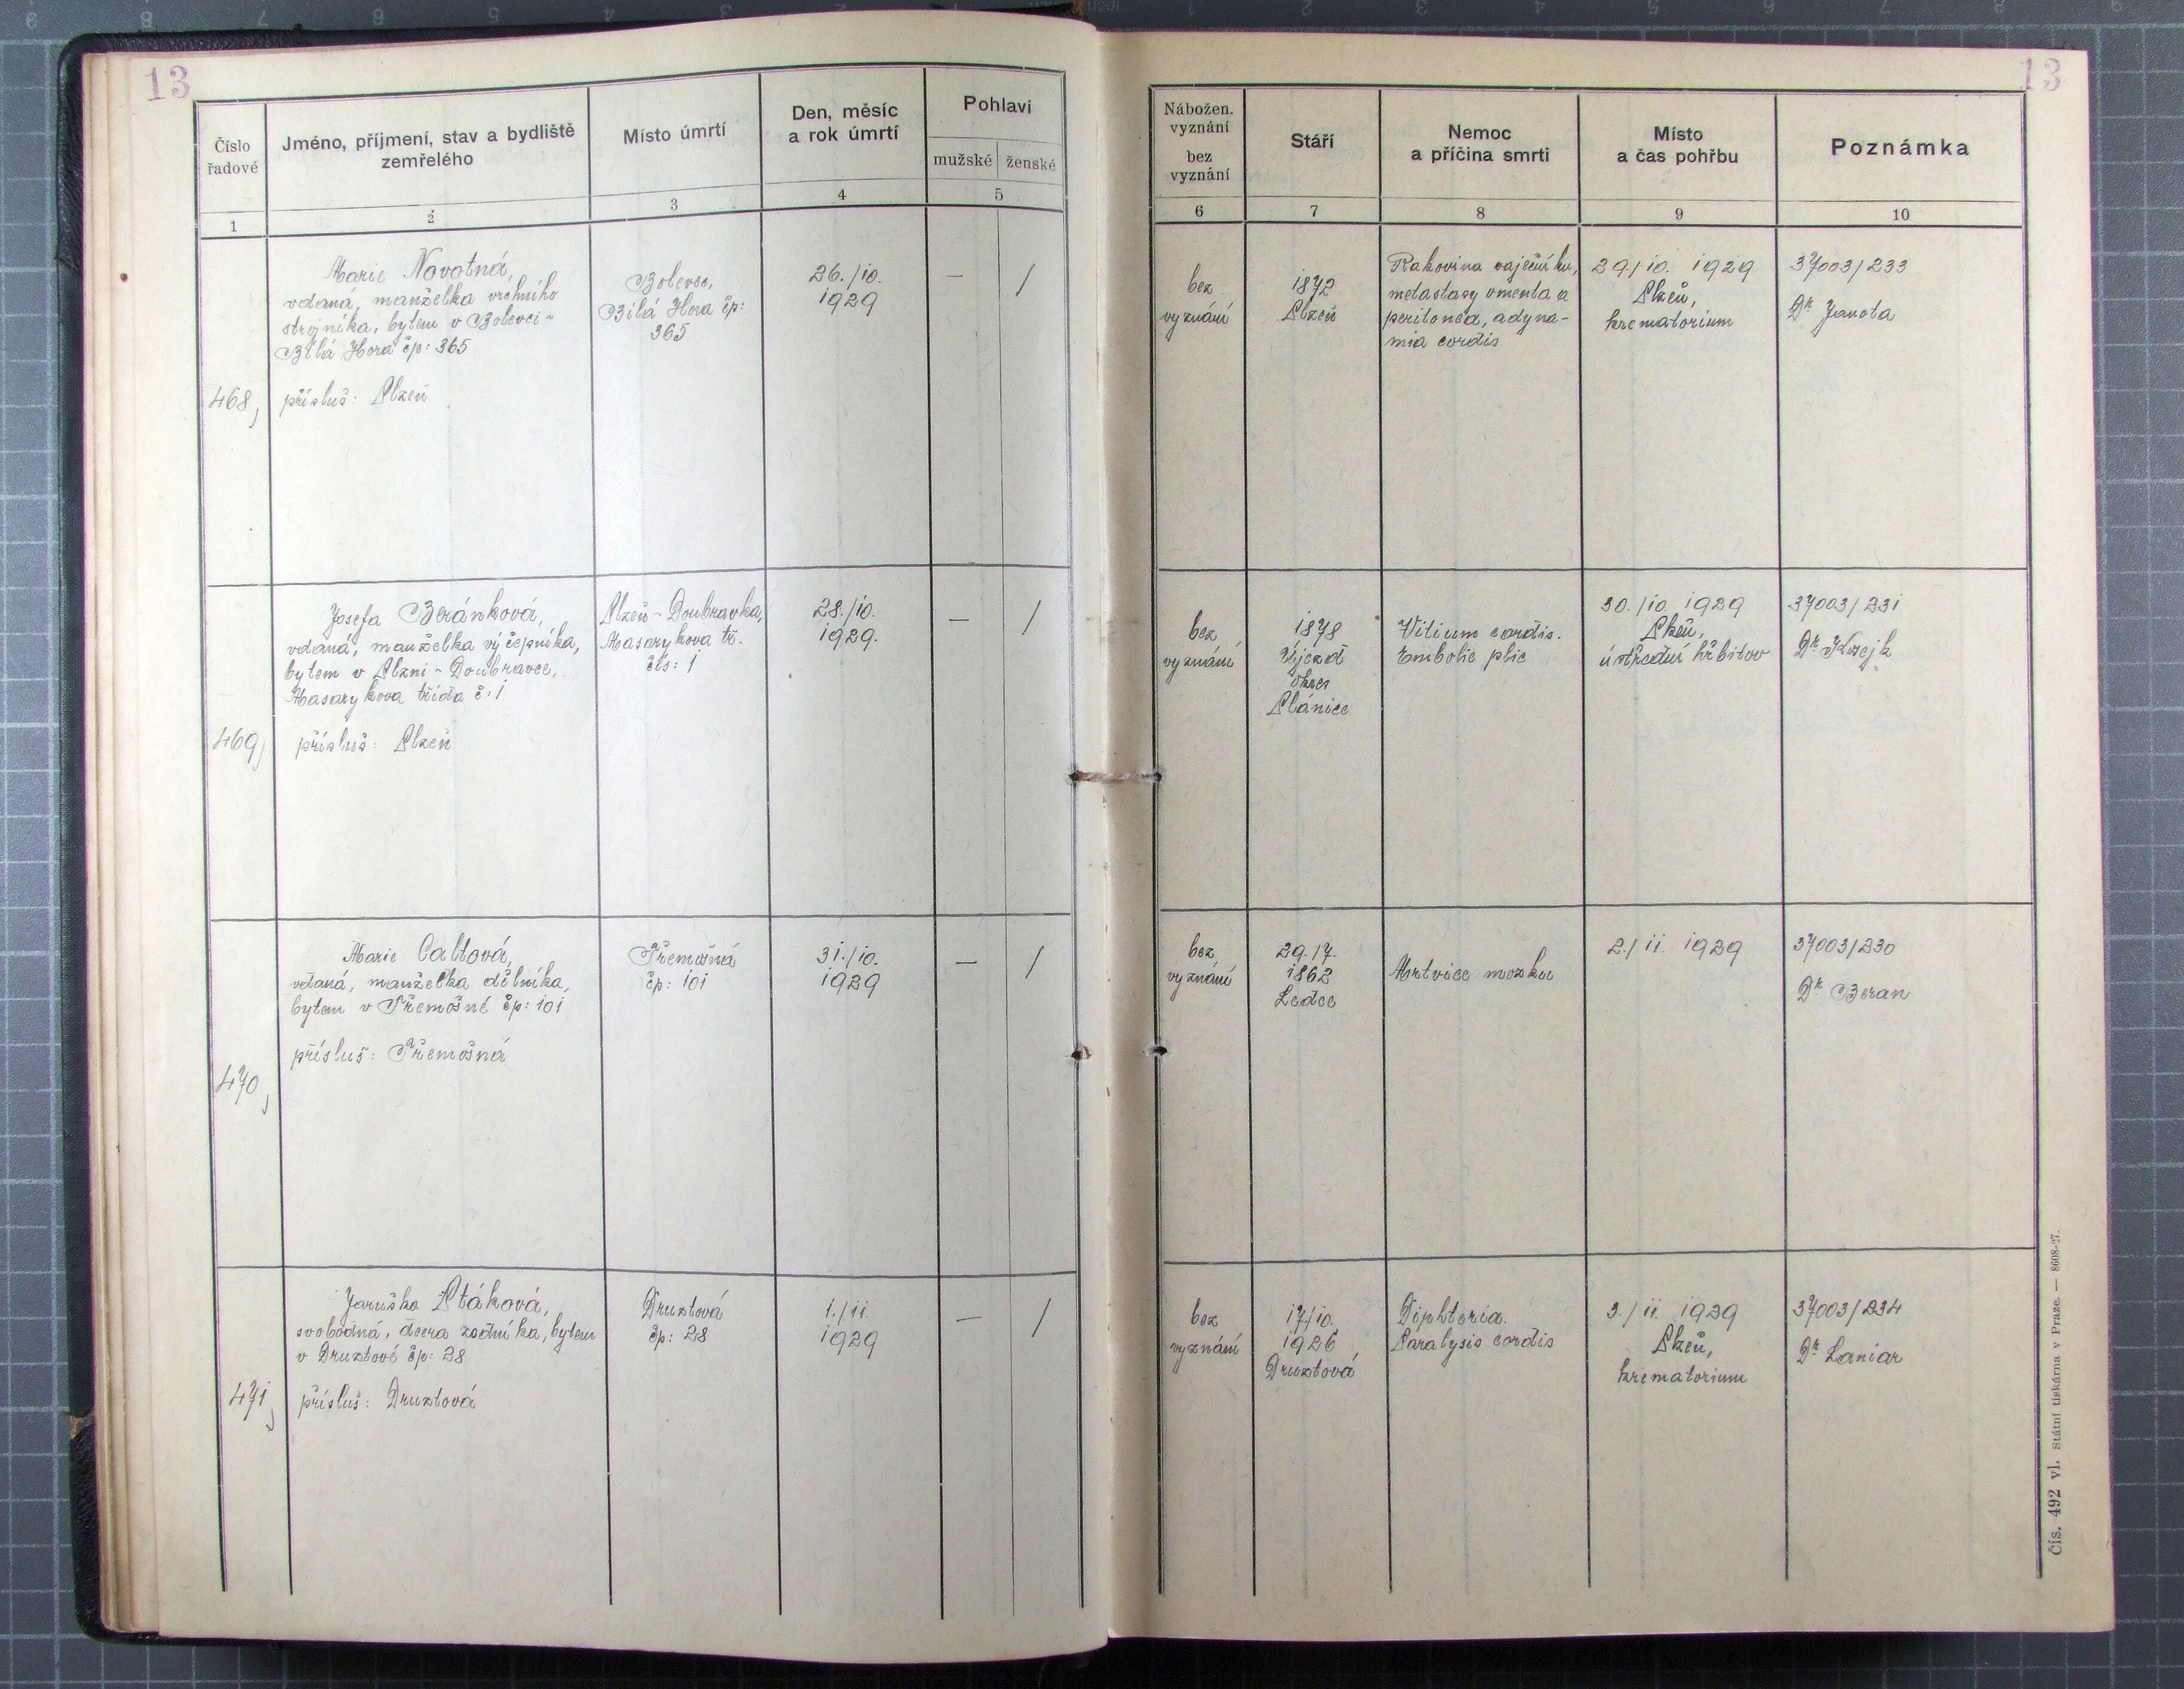 13
13
Číslo
řadové
Jméno, příjmení, stav a bydliště
zemřelého
Místo úmrtí
Den, měsíc
a rok úmrtí
Pohlaví
mužské
ženské
1
2
3
4
5
Nábožen.
vyznání
bez
vyznání
Stáří
Nemoc
a příčina smrti
Místo
a čas pohřbu
Poznámka
6
7
8
9
10
468,
Marie Novotná,
vdaná, manželka vrchního
strojníka, bytem v Bolevci-
Bílá Hora čp: 365
přísluš: Plzeň
Bolevec,
Bílá Hora čp:
365
26./10.
1929
—
/
bez
vyznání
1872
Plzeň
Rakovina vaječníku,
metastasy omenta a
peritonea, adyna-
mia cordis
29./10. 1929
Plzeň,
krematorium
37003/233
Dr Janota
469,
Josefa Beránková,
vdaná, manželka výčepníka,
bytem v Plzni-Doubravce,
Masarykova třída č: 1
přísluš: Plzeň
Plzeň-Doubravka,
Masarykova tř.
čís: 1
28./10.
1929.
—
/
bez
vyznání
1878
Újezd
okres
Plánice
Vitium cordis.
Embolie plic
30./10 1929
Plzeň,
ústřední hřbitov
37003/231
Dr Krejk
470,
Marie Caltová,
vdaná, manželka dělníka,
bytem v Třemošné čp: 101
přísluš: Třemošná
Třemošná
čp: 101
31./10.
1929
—
/
bez
vyznání
29./7.
1862
Ledce
Mrtvice mozku
2./11. 1929
37003/230
Dr Beran
471,
Jaruška Ptáková,
svobodná, dcera zedníka, bytem
v Druztové čp: 28
přísluš: Druztová
Druztová
čp: 28
1./11.
1929
—
/
bez
vyznání
17/10.
1926
Druztová
Diphteria.
Paralysis cordis
3./11. 1929
Plzeň,
krematorium
37003/234
Dr Laniar
Čís. 492 vl. Státní tiskárna v Praze. — 8608-27.